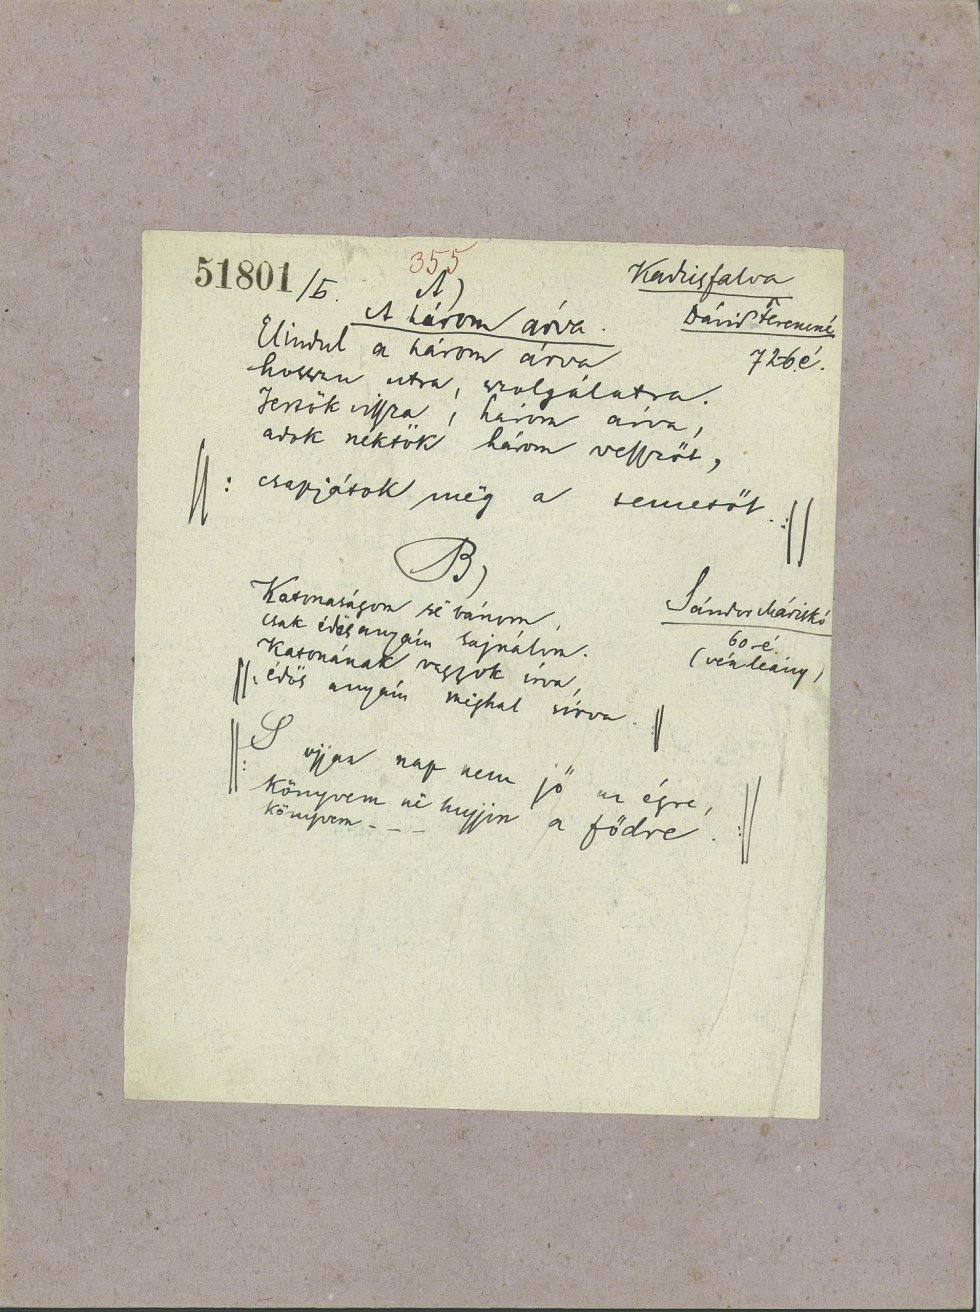 355
51801/b.
A)
Kadicsfalva
A három árva.
Dávid Ferencné
72 é.
Elindul a három árva
hosszu utra, szolgálatra.
Jertök vissza, három árva,
adok néktök három vesszőt,
||: csapjátok még a temetőt. :||
B)
Sándor Mariskó
60 é.
(vén leány)
Katonaságom sё bánom,
csak édёsanyám sajnálom.
Katonának vagyok írva,
||: édös anyám mighal sírva. ||
||: S ujjan nap nem jő az égre,
Könyvem nё hujjin a födre. :||
könyvem - - -